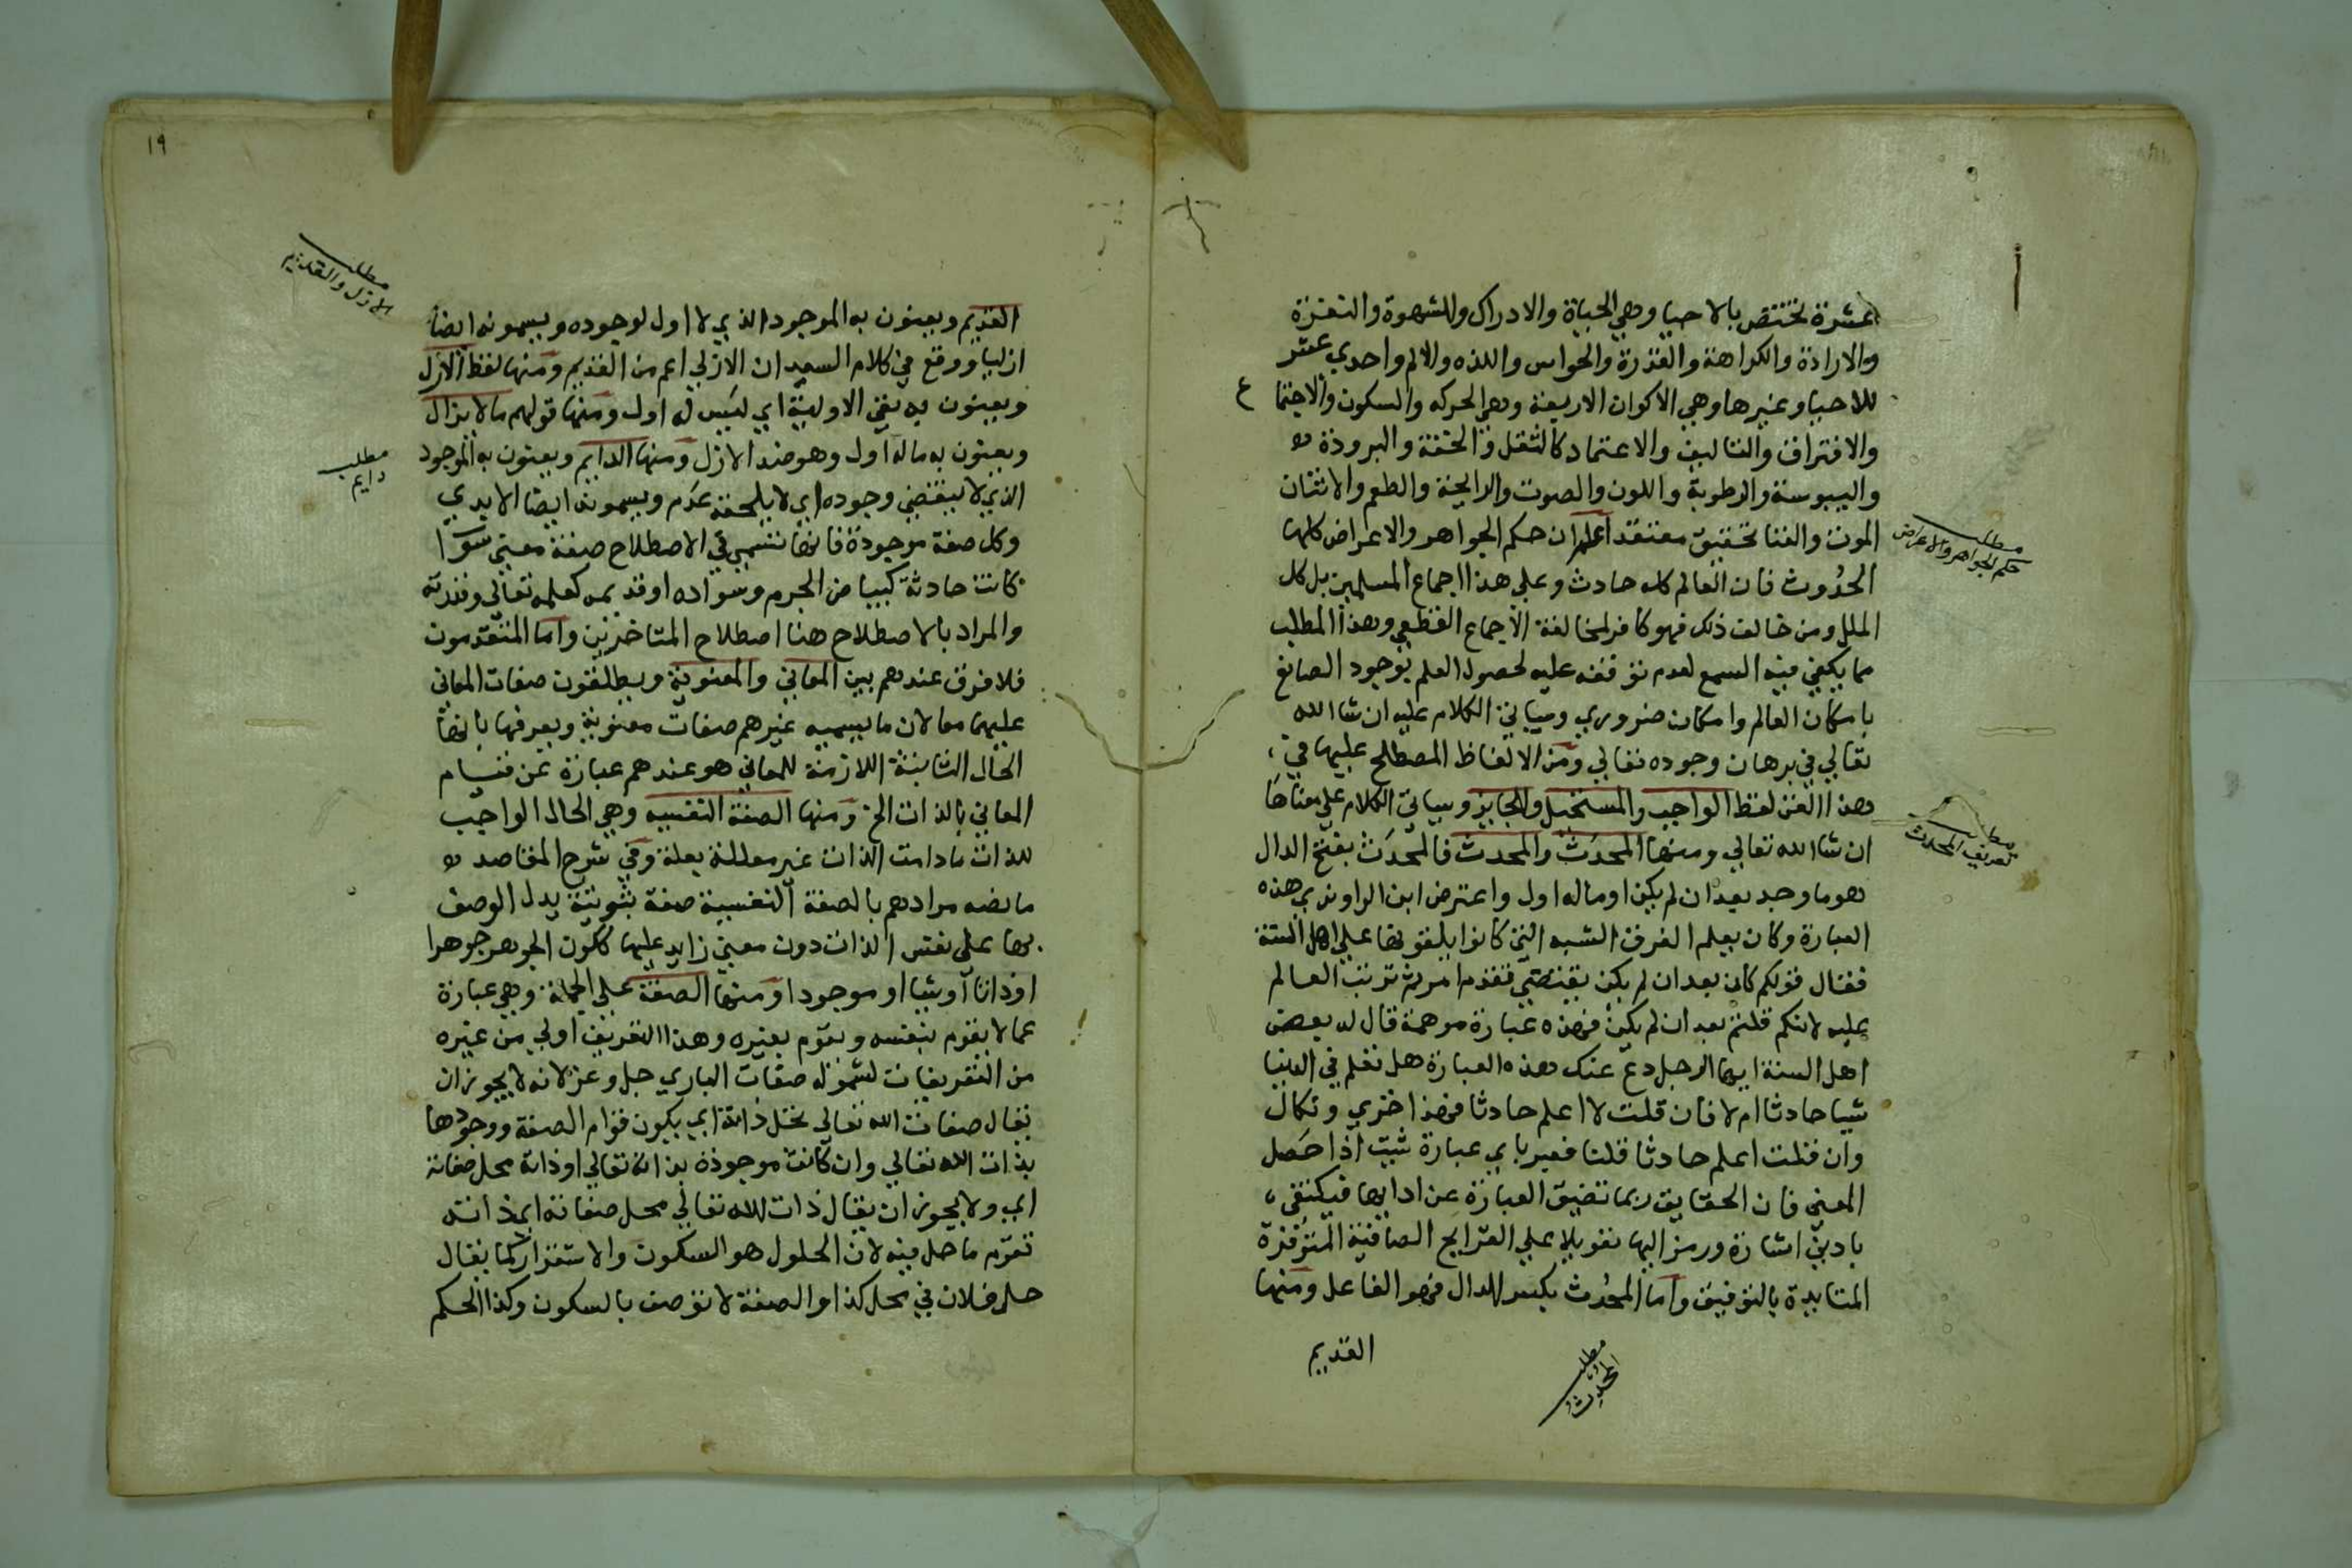 عشرة تختص بالاحيا وهي الحياة والادراك والشهوة والنفرة
والارادة والكراهة والقدرة والحواس واللذه والالم واحدي عشر
للاحيا وغيرها وهي الاكوان الاربعة وهي الحركه والسكون والاجتما
ع
والافتراق والتاليف والاعتماد كالثقل والخفة والبرودة
واليبوسة والرطوبة واللون والصوت والرايحة والطعم والاثنان
الموت والفنا تحقيق معتقد اعلم ان حكم الجواهر والاعراض كلها
مطلب
حكم الجواهر والاعراض
الحُدُوث فان العالم كله حادث وعلي هذا اجماع المسلمين بل كل
الملل ومن خالف ذلك فهو كافر لمخالفة الاجماع القطعي وهذا المطلب
مما يكفي فيه السمع لعدم توقفه عليه لحصول العلم بوجود الصانع
بامكان العالم وامكانه ضروري وسياتي الكلام عليه ان شا الله
تعالي في برهان وجوده تعالي ومن الالفاظ المصطلح عليها في
هذا الفن لفظ الواجب والمستحيل والجايز وسياتي الكلام علي معناها
مطلب
تعريف المحدث
ان شا الله تعالي ومنها المحدَث والمحدِث فالمحدَث بفتح الدال
هو ما وجد بعد ان لم يكن او ماله اول واعترض ابن الراوندي هذه
العبارة وكان يعلم الفرق الشبه التي كانوا يلقونها علي اهل السنة
فقال قولكم كان بعد ان لم يكن يقتضي تقدم امر ثم ترتب العالم
عليه لانكم قلتم بعد ان لم يكن فهذه عبارة موهمة قال له بعض
اهل السنة ايها الرجل دع عنك هذه العبارة هل تعلم في الدنيا
شيا حادثا ام لا فان قلت لا اعلم حادثا فهذا خزي ونكال
وان قلت اعلم حادثا قلنا فعبر باي عبارة شيت اذا حَصل
المعني فان الحقايق ربما تضيق العبارة عن ادايها فيكتفي
بادني اشارة ورمز اليها تعويلا علي القرايح الصافية المتوقدة
المتايدة بالتوفيق واما المحدِث بكسر الدال فهو الفاعل ومنها
القديم
مطلب
المحدِث
١٩
القديم ويعنون به الموجود الذي لا اول لوجوده ويسمونه ايضا
مطلب
الازل والقديم
ازليا ووقع في كلام السعد ان الازلي اعم من القديم ومنها لفظ الازل
ويعنون به نفي الاولية اي ليس له اول ومنها قولهم مالا يزال
ويعنون به ماله اول وهو ضد الازل ومنها الدايم ويعنون به الموجود
مطلب
دايم
الذي لا ينقضي وجوده اي لا يلحقه عدم ويسمونه ايضا الابدي
وكل صفة موجودة فانها تسمي في الاصطلاح صفة معني سوا
كانت حادثة كبياض الجرم وسواده او قديمه كعلمه تعالي وقدرته
والمراد بالاصطلاح هنا اصطلاح المتاخرين واما المتقدمون
فلا فرق عندهم بين المعاني والمعنوية ويطلقون صفات المعاني
عليهما معا لان ما يسميه غيرهم صفات معنوية ويعرفها بانها
الحال الثابتة اللازمة للمعاني هو عندهم عبارة عن قيام
المعاني بالذات الخ ومنها الصفة النفسيه وهي الحال الواجب
للذات مادامت الذات غير معللة بعلة وفي شرح المقاصد
ما نصه مرادهم بالصفة النفسية صفة ثبوتية يدل الوصف
بها علي نفس الذات دون معني زايد عليها ككون الجوهر جوهرا
اوذاتا اوشيا او موجودا ومنها الصفة علي الجملة وهي عبارة
عما لا يقوم بنفسه ويقوم بغيره وهذا التعريف اولي من غيره
من التعريفات لشموله صفات الباري جل وعز لانه لا يجوز ان
يقال صفات الله تعالي تحل ذاته اي يكون قوام الصفة ووجودها
بذات الله تعالي وان كانت موجودة بذاته تعالي اوذاته محل صفاته
اي ولا يجوز ان يقال ذات الله تعالي محل صفاته اي ذاته
تقوم ما حل فيه لان الحلول هو السكون والاستقرار كما يقال
حل فلان في محل كذا والصفة لا توصف بالسكون وكذا الحكم